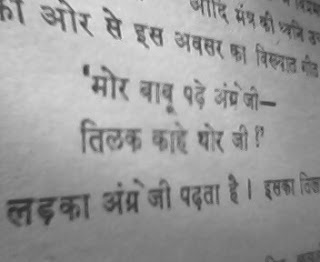 आदि मंत्र की ध्वनि
की ओर से इस अवसर का विख्यात गीत
'मोर बाबू पढ़े अंग्रेजी—
तिलक काहे थोर जी !'
लड़का अंग्रेजी पढ़ता है । इसका